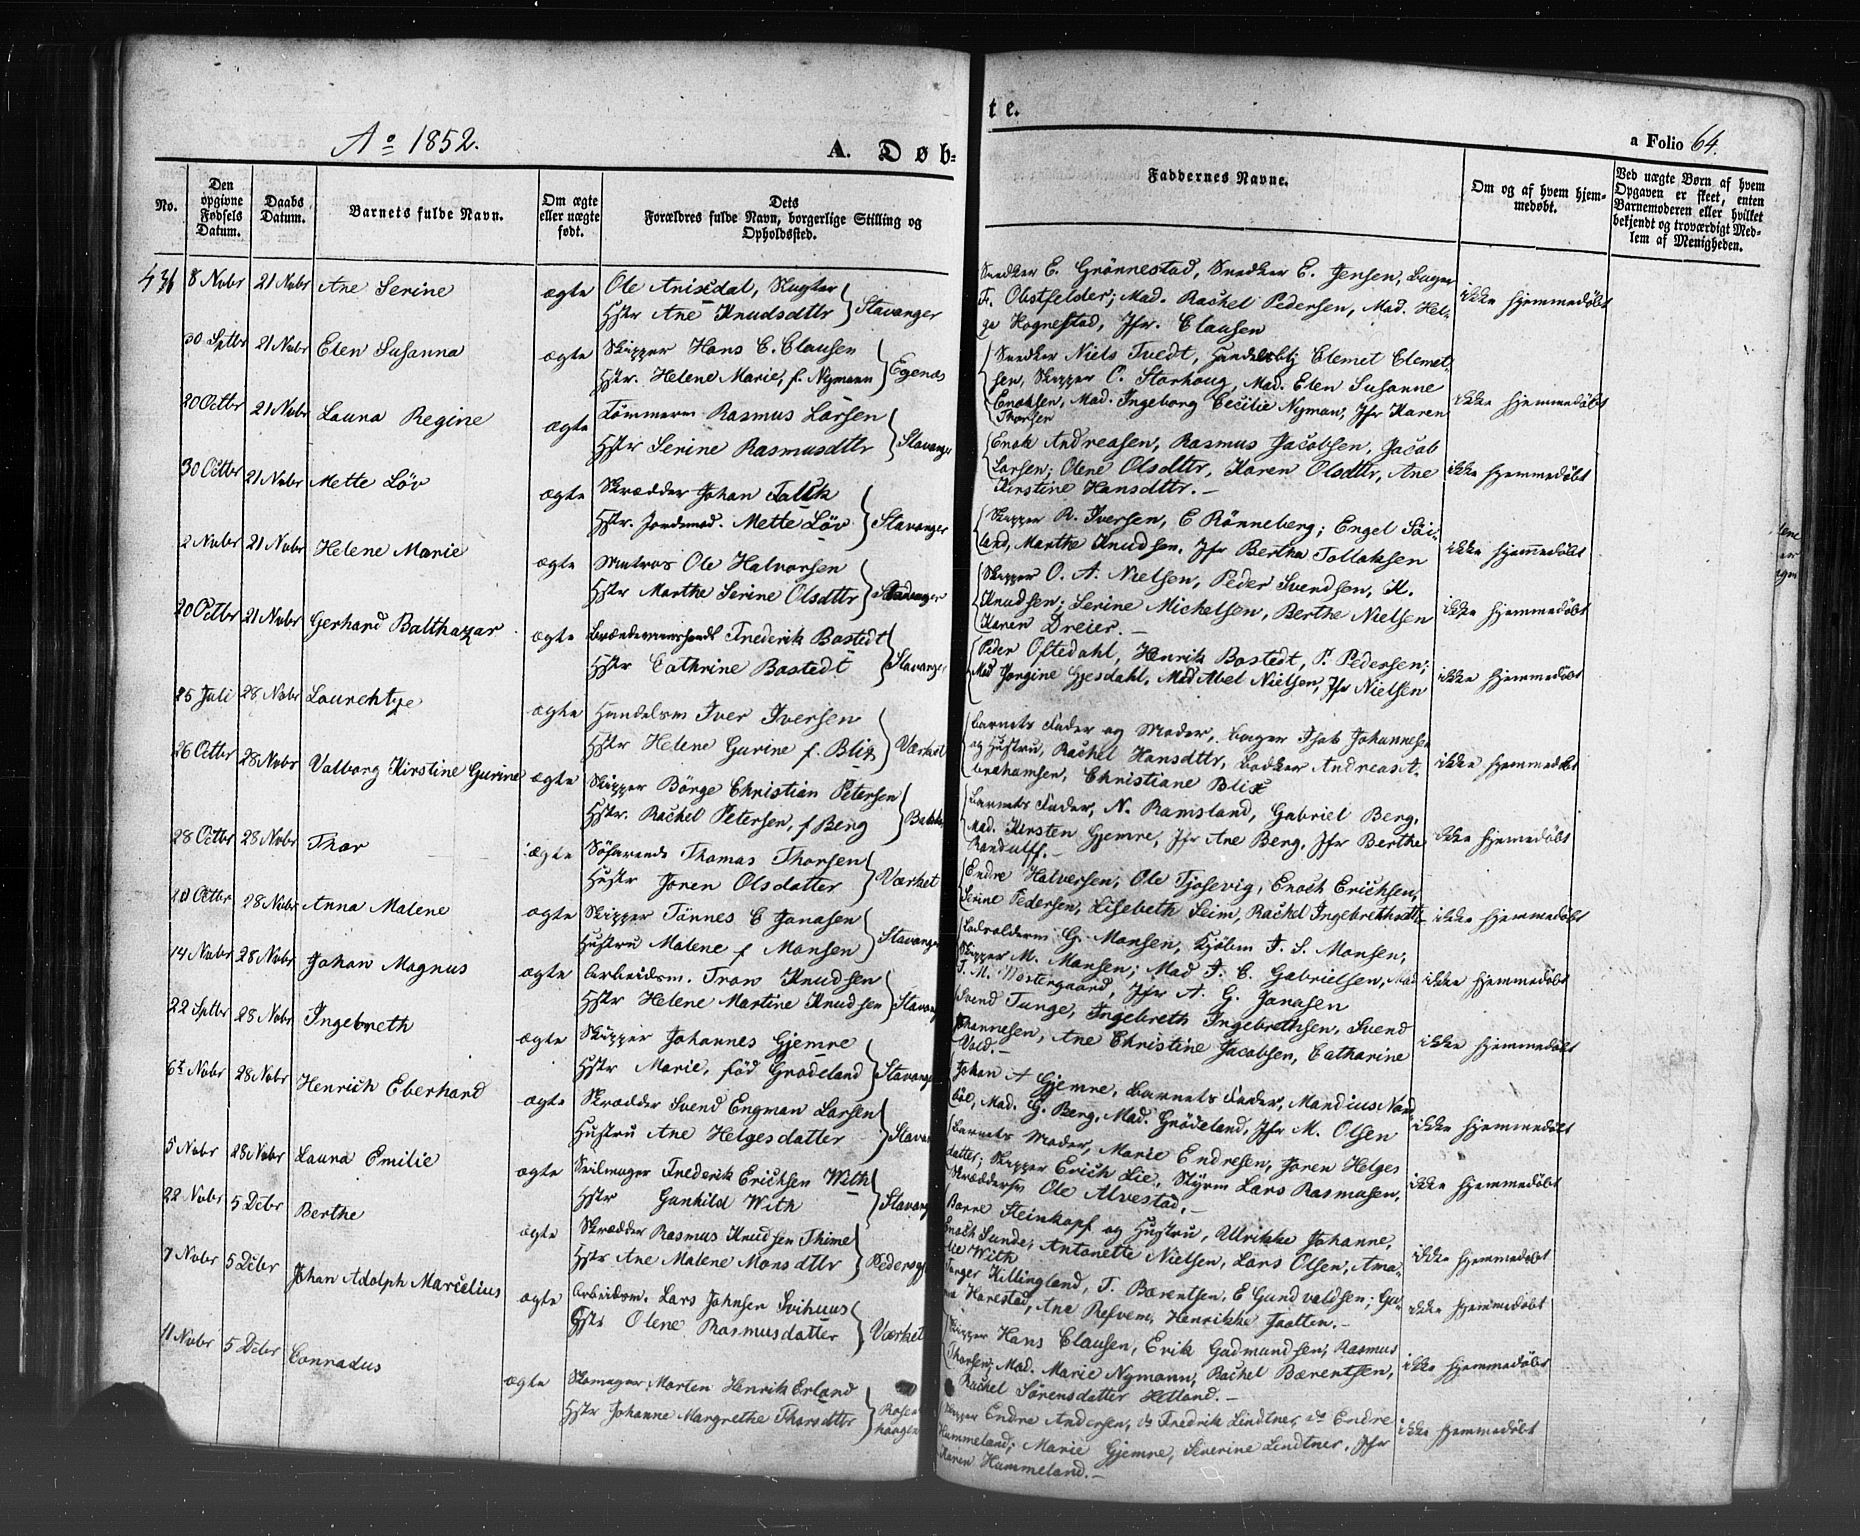 Aº 1852.
A. Døb=
te.
a Folio 64.
No.
Den opgivne Fødsels Datum.
Daabs Datum.
Barnets fulde Navn.
Om ægte eller uægte født.
Dets Forældres fulde Navn, borgerlige Stilling og Opholdssted.
Faddernes Navne.
Om og af hvem hjem-
medøbt.
Ved uægte Børn af hvem
Opgaven er skeet, enten
Barnemoderen eller hvilket
bekjendt og troværdigt Med-
lem af Menigheden.
8 Nobr 21 Nobr Ane Serine ægte Ole Anixdal, Slagter
Hstr Ane Knudsdttr } Stavanger
Snedker E. Grönnestad, Snedker E. Jensen, Bager
F. Obstfelder; Mad. Rachel Pedersen, Mad. Hel-
ga Hognestad, Jfr. Clausen
ikke hjemmedöbt
30 Sptbr 21 Nobr Elen Susanna ægte Skipper Hans C. Clausen
Hstr. Helene Marie, f. Nymann } Egenæs
Snedker Niels Tvedt, Clemet Clemet
sen, Skipper C. Storhoug, Mad. Elen Susanne
Enoksen, Mad. Ingeborg Cecilie Nyman, Jfr Karen
Thorsen
ikke hjemmedöbt
20 Octbr 21 Nobr Laura Regine ægte Tömmerm. Rasmus Larsen
Hstr Serine Rasmusdttr } Stavanger
Enok Andreasen, Rasmus Jacobsen, Jacob
Larsen; Olene Olsdttr, Karen Olsdttr, Ane
Kirstine Hansdttr. –
ikke hjemmedöbt
30 Octbr 21 Nobr Mette Löv ægte Skrædder Johan Falck
Hstr. Jordemod. Mette Löv } Stavanger
Skipper R. Iversen, E Rönneberg; Engel Söi-
land, Marthe Knudsen, Jfr Bertha Tollaksen
ikke hjemmedöbt
2 Nobr 21 Nobr Helene Marie ægte Matros Ole Halvorsen
Hstr Marthe Serine Olsdttr } Stavanger
Skipper O. A. Nielsen, Peder Svendsen, K.
Knudsen; Serine Michelsen, Berthe Nielsen
Karen Dreier. –
ikke hjemmedöbt
20 Octbr 21 Nobr Gerhard Balthazar ægte Frederik Bostedt
Hstr Cathrine Bostedt } Stavanger
Peder Oftedahl, Henrik Bostedt, P. Pedersen;
Mad Jorgine Gjesdahl, Mad Abel Nielsen, Jfr Nielsen
ikke hjemmedöbt
25 Juli 28 Nobr Laurentze ægte Handelsm Iver Iversen
Hstr Helene Gurine f. Blix } Værket
Barnets Fader og Moder, Bager Johannesen
og Hustru, Rachel Hansdttr, Bødker Andreas A-
brahamsen, Christiane Blix
ikke hjemmedöbt
26 Octbr 28 Nobr Valborg Kirstine Gurine ægte Skipper Börge Christian Petersen
Hstr. Rachel Petersen, f Berg
Barnets Fader, N. Ramsland, Gabriel Berg,
Mad. Kirsten Gjemre, Jfr Ane Berg, Jfr Berthe
Randulff. –
ikke hjemmedöbt
28 Octbr 28 Nobr Thor ægte Söfarende Thomas Thorsen
Hustr Joren Olsdatter } Værket
Endre Halversen, Ole Tjosevig, Enoch Erichsen,
Serine Pedersen, Lisebeth Seim, Rachel Ingebrethsdttr
ikke hjemmedöbt
28 Nobr Anna Malene ægte Skipper Tönnes C Jonasen
Hustru Malene f Monsen } Stavanger
G. Monsen, Kjöbm J. S. Monsen;
Skipper M. Monsen; Mad J. C. Gabrielsen, Mad
T. M. Westergaard, Jfr A. G. Jonasen
ikke hjemmedöbt
14 Nobr 28 Nobr Johan Magnus ægte Arbeidsm. Tron Knudsen
Hstr Helene Martine Knudsen } Stavang
Svend Tunge, Ingebreth Ingebrethsen, Svend
Johannesen, Ane Christine Jacobsen, Catharine
Vold. –
ikke hjemmedöbt
22 Sptbr 28 Nobr Ingebreth ægte Skipper Johannes Gjemre
Hstr Marie, föd Grödeland } Stavang
Johan A Gjemre, Barnets Fader, Mandius Nord
böe, Mad. G. Berg, Mad. Grödeland, Jfr M. Olsen
ikke hjemmedöbt
6t Nobr 28 Nobr Henrich Eberhard ægte Skrædder Svend Engman Larsen
Hustru Ane Helgesdatter } Stavan
Barnets Moder, Marie Endresen, Joren Helges
datter; Skipper Erich Lie, Styrm Lars Rasmusen,
Skræddersv Ole Alvestad. –
ikke hjemmedöbt
5 Nobr 28 Nobr Laura Emilie ægte Seilmager Frederik Erichsen With
Hstr Gunhild With } Stavang
Borre Steinkopf og Hustru, Ulrikke Johanne,
Enoch Sunde, Antonette Nielsen, Lars Olsen, Ama-
lie With
ikke hjemmedöbt
22 Nobr 5 Debr Berthe ægte Skrædder Rasmus Knudsen Thime
Hstr Ane Malene Monsdttr } Pedersg
Killingland, T. Bærentsen, E Gundvaldsen; Gu-
Harestad, Ane Refvem, Henrikke Jaatten. –
ikke hjemmedöbt
7 Nobr 5 Debr Johan Adolph Marcelius ægte Arbeidsm. Lars Johnsen Svihuus
Hstr Olene Rasmusdatter } Værket
Skipper Hans Clausen, Erik Gudmundsen, Rasmus
Thorsen; Mad. Marie Nymann, Rachel Bærentsen,
Rachel Sörensdatter Hetland. –
ikke hjemmedöbt
11 Nobr 5 Debr Conradus ægte Skomager Morten Henrik Erland
Hstr Johanne Margrethe Thorsdttr } Rosen
haagen
Skipper Endre Andersen, do Fredrik Lindtner, do Endre
Hummeland; Marie Gjemre, Severine Lindtner, Jfr
Karen Hummeland. –
ikke hjemmedöbt